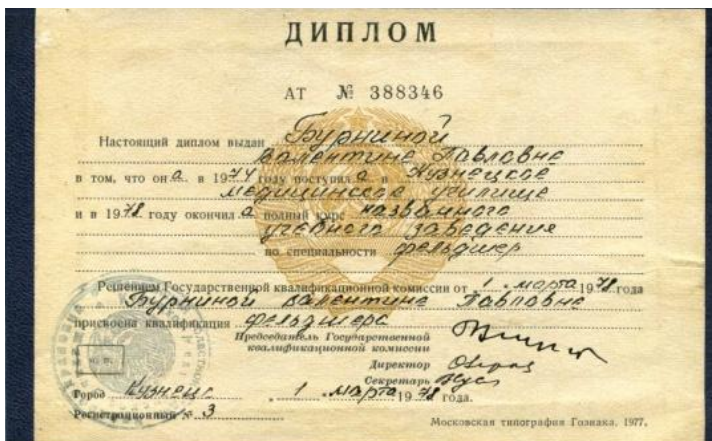 ДИПЛОМ
АТ № 388346
Настоящий диплом выдан Бурниной
Валентине Павловне
в том, что она в 1974 году поступила в Кузнецкое
медицинское училище
и в 1978 году окончила полный курс названного
учебного заведения
по специальности фельдшер
Решением Государственной квалификационной комиссии от 1 марта 1978 года
Бурниной Валентине Павловне
присвоена квалификация фельдшера
Председатель Государственной
квалификационной комиссии
Директор
Секретарь
Город Кузнецк 1 марта 1978 года.
Регистрационный № 3
Московская типография Гознака. 1977.